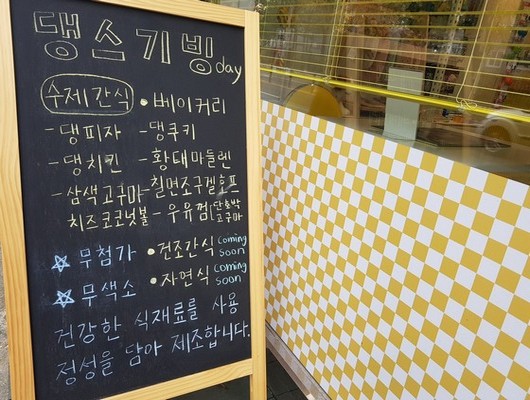 댕스기빙day
수제간식 •베이커리
-댕피자 -댕쿠키
-댕치킨 -황태마들렌
-삼색고구마 -칠면조구겔호프
치즈코코넛볼 -우유껌(단호박 고구마
☆무첨가 •건조간식 coming soon
☆무색소 •자연식 coming soon
건강한 식재료를 사용
정성을 담아 제조합니다.